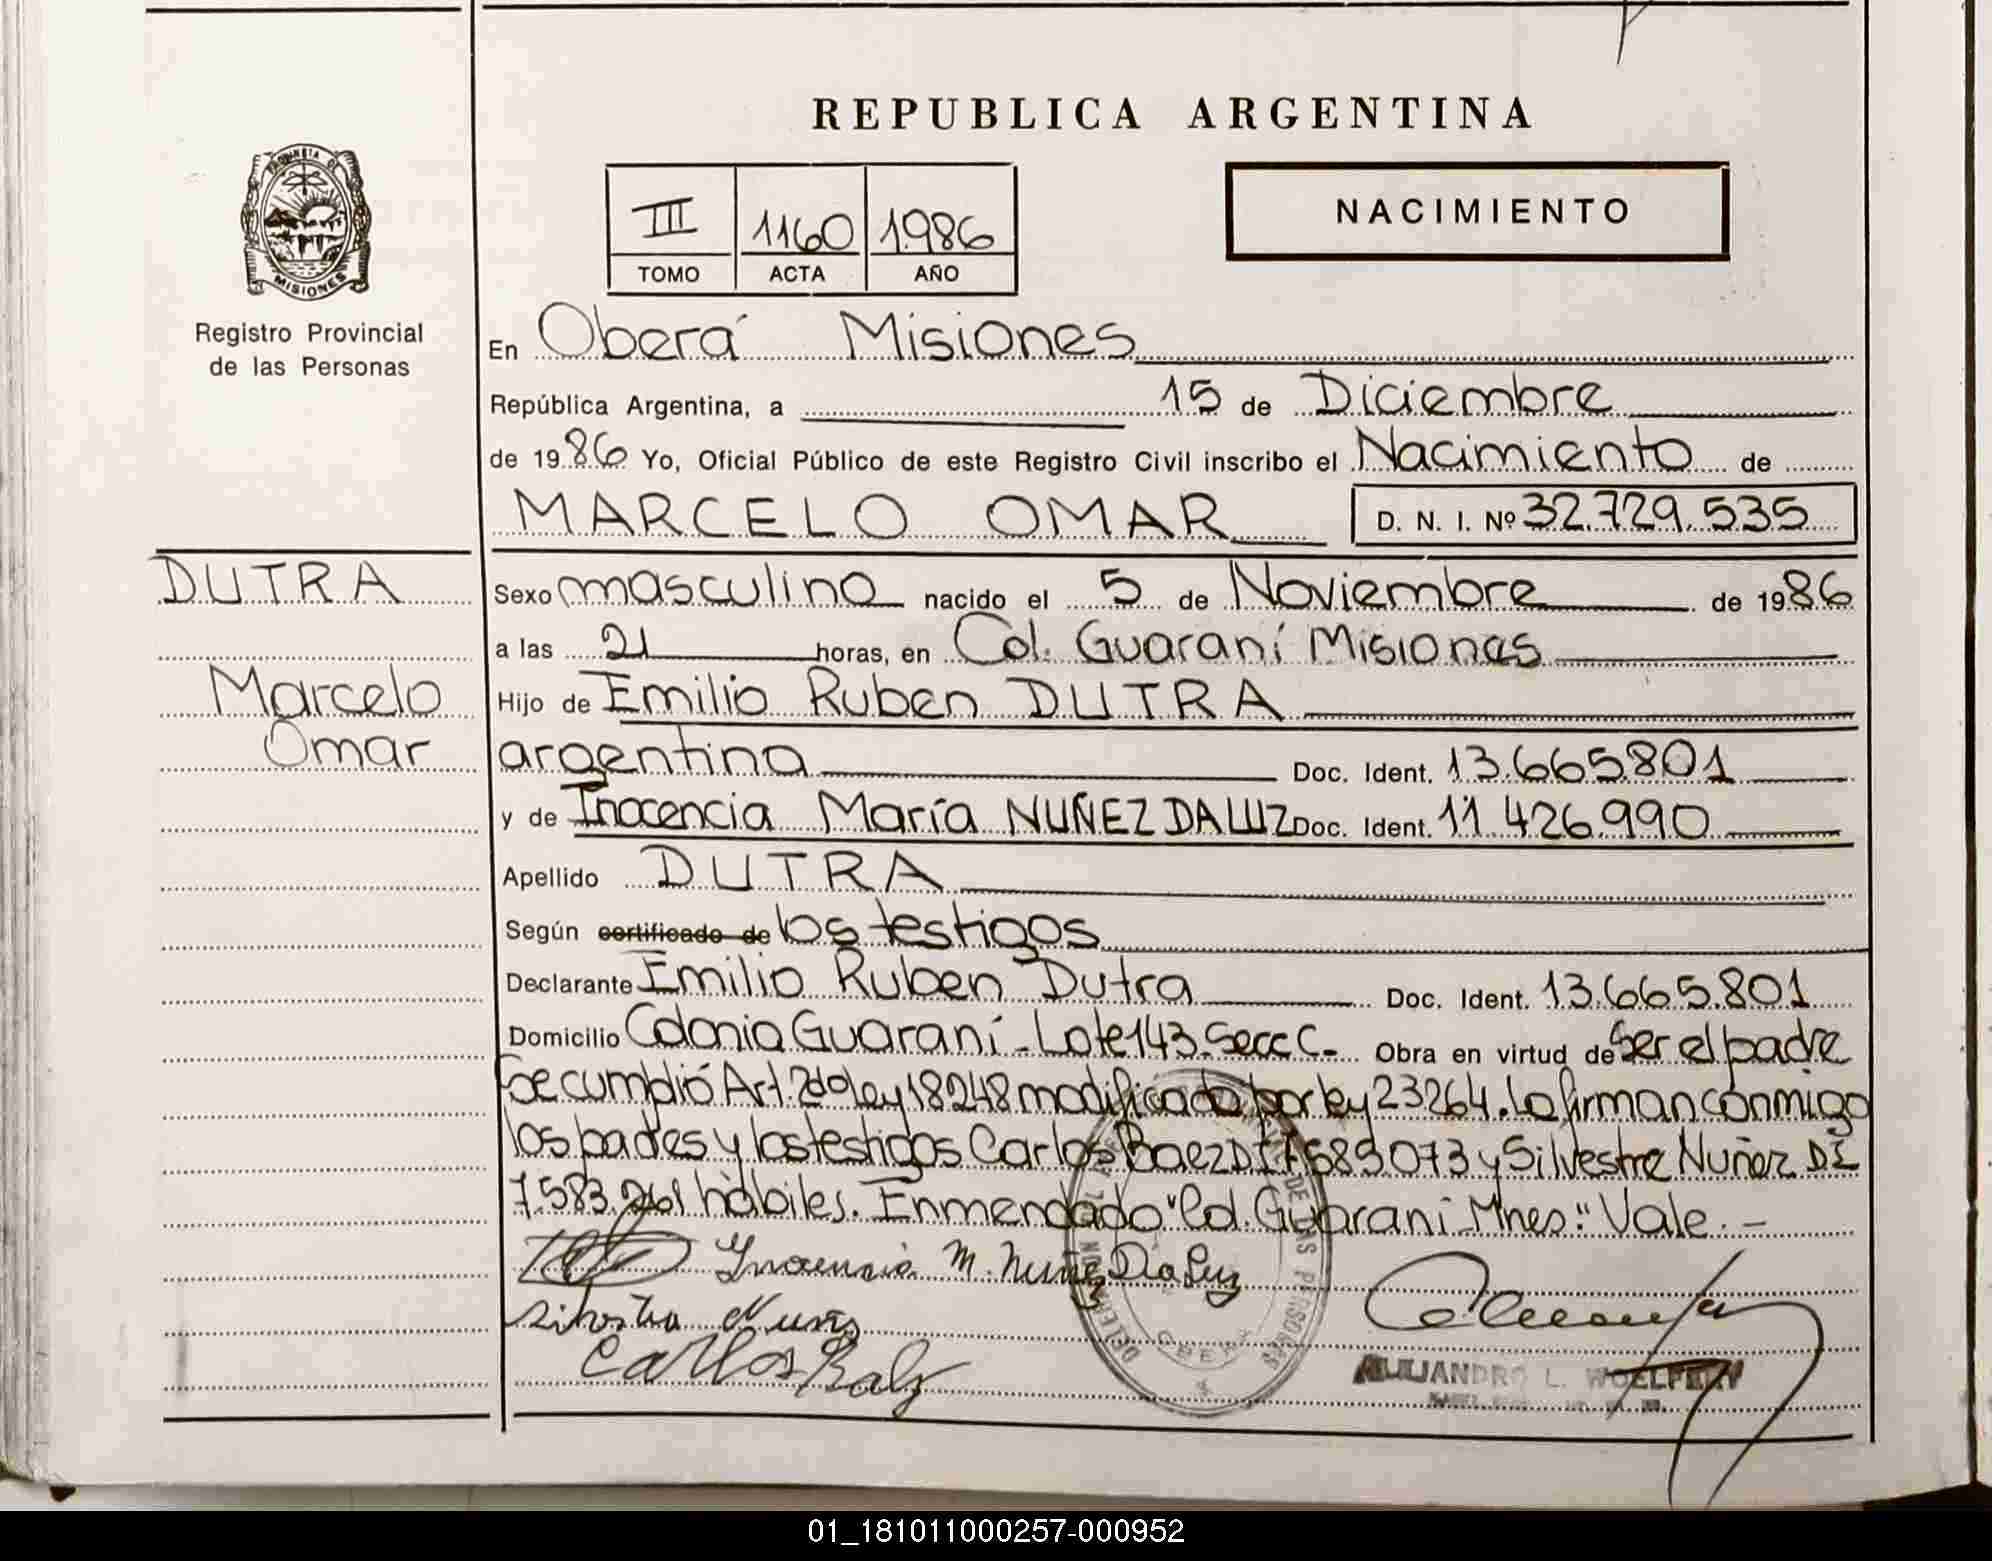 REPUBLICA ARGENTINA
PROVINCIA DE
MISIONES
Registro Provincial
de las Personas
III 1160 1986
TOMO ACTA AÑO
NACIMIENTO
En Oberá Misiones
República Argentina, a 15 de Diciembre
de 1986 Yo, Oficial Público de este Registro Civil inscribo el Nacimiento de
MARCELO OMAR D. N. I. Nº 32.729.535
DUTRA
Marcelo
Omar
Sexo masculino nacido el 5 de Noviembre de 1986
a las 21 horas, en Col. Guaraní Misiones
Hijo de Emilio Ruben DUTRA
argentina Doc. Ident. 13.665.801
y de Inocencia María NUÑEZ DA LUZ Doc. Ident. 11.426.990
Apellido DUTRA
Según certificado de los testigos
Declarante Emilio Ruben Dutra Doc. Ident. 13.665.801
Domicilio Colonia Guaraní - Lote 143. Secc C. Obra en virtud de Ser el padre
Se cumplió Art. 2do ley 18248 modificado por ley 23264. Lo firman conmigo
los padres y los testigos Carlos Baez DI 7589073 y Silvestre Nuñez DI
7.583.261 hábiles. Enmendado "Col. Guaraní Mnes." Vale. -
Inocencia M. Nuñez Da Luz
Silvestre Nuñez
Carlos Baez
OBERA
ALEJANDRO L.
01_181011000257-000952